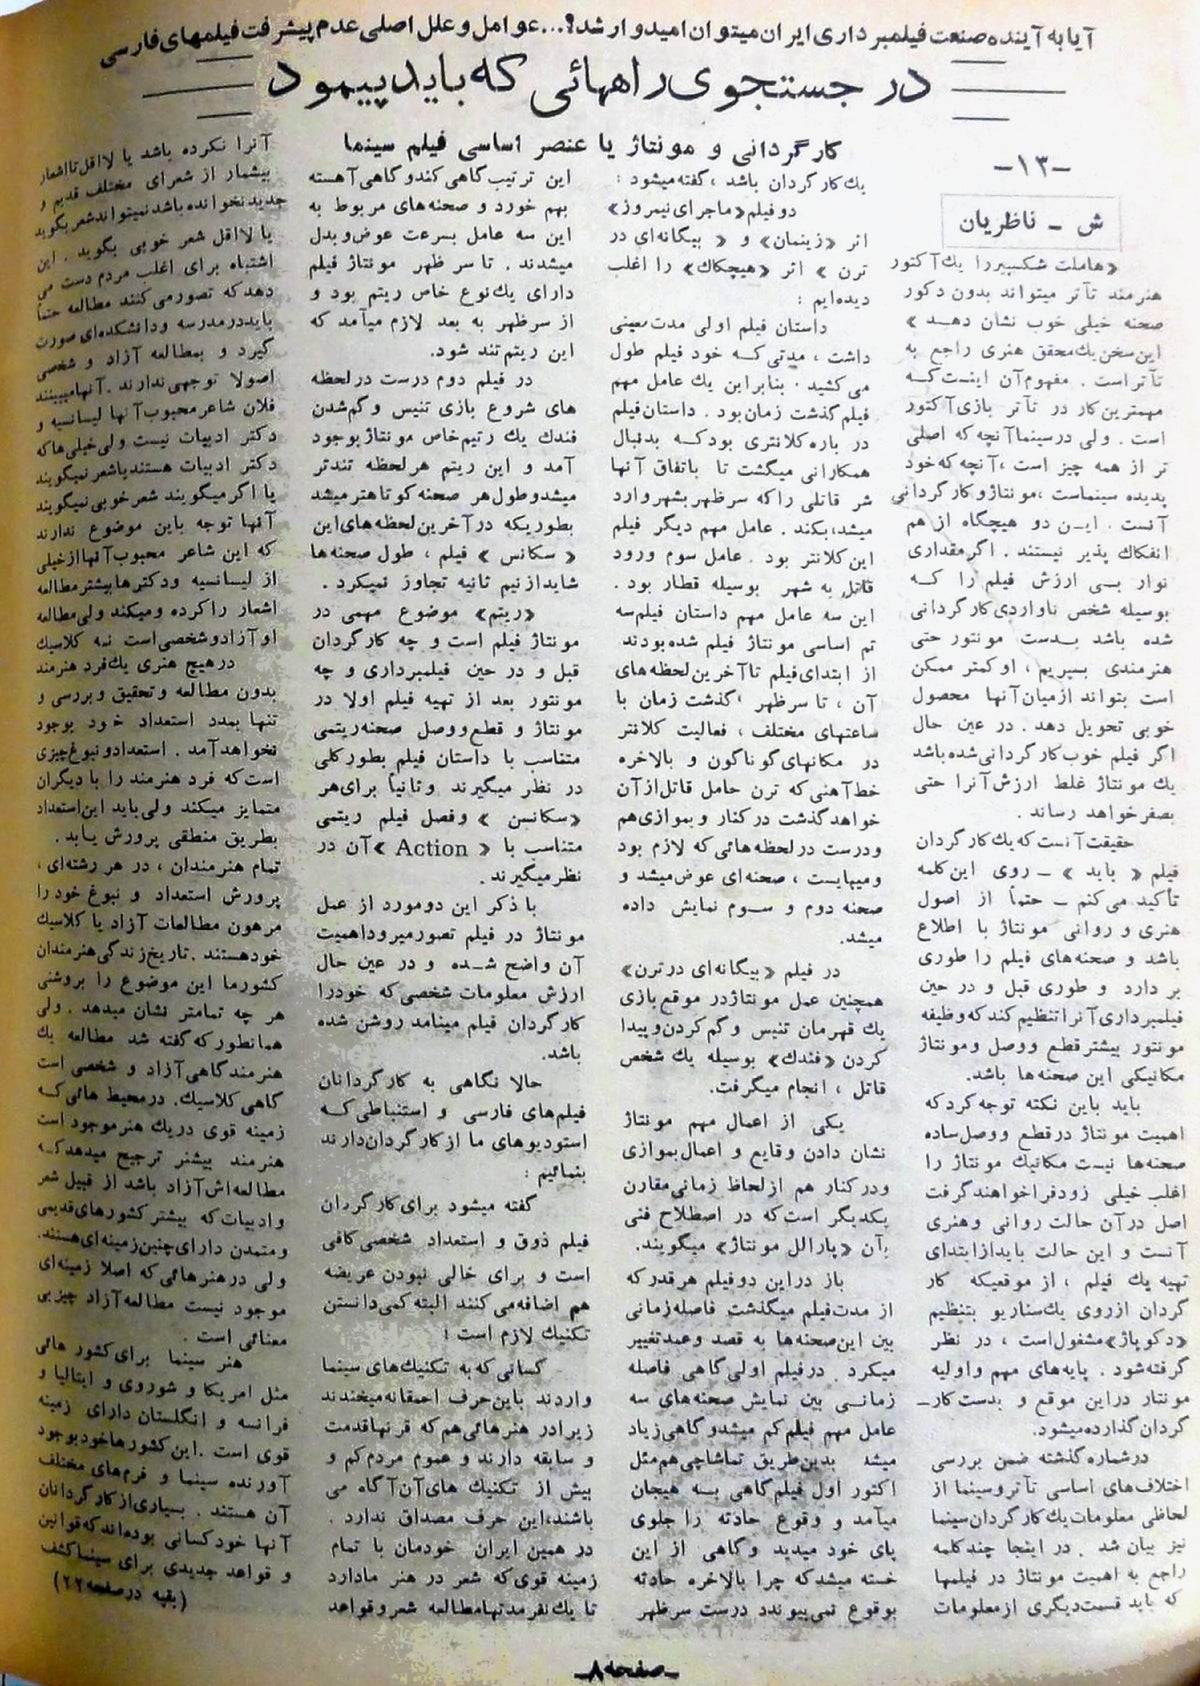 آیا به آینده صنعت فیلمبرداری ایران میتوان امیدوار شد؟...عوامل و علل اصلی عدم پیشرفت فیلمهای فارسی
در جستجوی راههائی که باید پیمود
کارگردانی و مونتاژ یا عنصر اساسی فیلم سینما
-۱۳-
ش - ناظریان
«هاملت شکسپیر را یك آکتور
هنرمند تآتر میتواند بدون دکور
صحنه خیلی خوب نشان دهد »
این سخن یك محقق هنری راجع به
تآتر است . مفهوم آن اینست که
مهمترین کار در تآتر بازی آکتور
است . ولی در سینما آنچه که اصلی
تر از همه چیز است ، آنچه که خود
پدیده سینماست ، مونتاژ و کارگردانی
آنست . این دو هیچگاه از هم
انفکاك پذیر نیستند . اگر مقداری
نوار بی ارزش فیلم را که
بوسیله شخص ناواردی کارگردانی
شده باشد بدست مونتور حتی
هنرمندی بسپریم ، او کمتر ممکن
است بتواند از میان آنها محصول
خوبی تحویل دهد . در عین حال
اگر فیلم خوب کارگردانی شده باشد
یك مونتاژ غلط ارزش آنرا حتی
بصفر خواهد رساند .
حقیقت آنست که یك کارگردان
فیلم « باید » - روی این کلمه
تأکید می کنم - حتماً از اصول
هنری و روانی مونتاژ با اطلاع
باشد و صحنه های فیلم را طوری
بر دارد و طوری قبل و در حین
فیلمبرداری آنرا تنظیم کند که وظیفه
مونتور بیشتر قطع و وصل و مونتاژ
مکانیکی این صحنه ها باشد.
باید باین نکته توجه کرد که
اهمیت مونتاژ در قطع و وصل ساده
صحنه ها نیست مکانیك مونتاژ را
اغلب خیلی زود فرا خواهند گرفت
اصل در آن حالت روانی و هنری
آنست و این حالت باید از ابتدای
تهیه یك فیلم ، از موقعیکه کار
گردان از روی یك سناریو بتنظیم
«دکوپاژ» مشغول است ، در نظر
گرفته شود . پایه های مهم و اولیه
مونتاژ در این موقع و بدست کار-
گردان گذارده میشود.
در شماره گذشته ضمن بررسی
اختلاف های اساسی تآتر و سینما از
لحاظی معلومات یك کارگردان سینما
نیز بیان شد . در اینجا چند کلمه
راجع به اهمیت مونتاژ در فیلمها
که باید قسمت دیگری از معلومات
یك کارگردان باشد ، گفته میشود :
دو فیلم «ماجرای نیمروز»
اثر «زینمان» و « بیگانه ای در
ترن » اثر «هیچکاك» را اغلب
دیده ایم :
داستان فیلم اولی مدت معینی
داشت ، مدتی که خود فیلم طول
می کشید . بنابراین یك عامل مهم
فیلم گذشت زمان بود . داستان فیلم
در باره کلانتری بود که بدنبال
همکارانی میگشت تا باتفاق آنها
شر قاتلی را که سر ظهر بشهر وارد
میشد، بکند . عامل مهم دیگر فیلم
این کلانتر بود . عامل سوم ورود
قاتل به شهر بوسیله قطار بود .
این سه عامل مهم داستان فیلم سه
تم اساسی مونتاژ فیلم شده بودند
از ابتدای فیلم تا آخرین لحظه های
آن ، تا سر ظهر ، گذشت زمان با
ساعتهای مختلف ، فعالیت کلانتر
در مکانهای گوناگون و بالاخره
خط آهنی که ترن حامل قاتل از آن
خواهد گذشت در کنار و بموازی هم
و درست در لحظه هائی که لازم بود
و میبایست ، صحنه ای عوض میشد و
صحنه دوم و سوم نمایش داده
میشد.
در فیلم «بیگانه ای در ترن»
همچنین عمل مونتاژ در موقع بازی
یك قهرمان تنیس و گم کردن و پیدا
کردن «فندك» بوسیله یك شخص
قاتل ، انجام میگرفت.
یکی از اعمال مهم مونتاژ
نشان دادن وقایع و اعمال بموازی
و در کنار هم از لحاظ زمانی مقارن
یکدیگر است که در اصطلاح فنی
بآن «پارالل مونتاژ» میگویند.
باز در این دو فیلم هر قدر که
از مدت فیلم میگذشت فاصله زمانی
بین این صحنه ها به قصد و عمد تغییر
میکرد . در فیلم اولی گاهی فاصله
زمانی بین نمایش صحنه های سه
عامل مهم فیلم کم میشد و گاهی زیاد
میشد بدین طریق تماشاچی هم مثل
آکتور اول فیلم گاهی به هیجان
میآمد و وقوع حادثه را جلوی
پای خود میدید و گاهی از این
خسته میشد که چرا بالاخره حادثه
بوقوع نمی پیوندد درست سر ظهر
این ترتیب گاهی کند و گاهی آهسته
بهم خورد و صحنه های مربوط به
این سه عامل بسرعت عوض و بدل
میشدند . تا سر ظهر مونتاژ فیلم
دارای یك نوع خاص ریتم بود و
از سر ظهر به بعد لازم میآمد که
این ریتم تند شود.
در فیلم دوم درست در لحظه
های شروع بازی تنیس و گم شدن
فندك یك رتیم خاص مونتاژ بوجود
آمد و این ریتم هر لحظه تندتر
میشد و طول هر صحنه کوتاهتر میشد
بطوریکه در آخرین لحظه های این
« سکانس » فیلم ، طول صحنه ها
شاید از نیم ثانیه تجاوز نمیکرد .
«ریتم» موضوع مهمی در
مونتاژ فیلم است و چه کارگردان
قبل و در حین فیلمبرداری و چه
مونتور بعد از تهیه فیلم اولا در
مونتاژ و قطع و وصل صحنه ریتمی
متناسب با داستان فیلم بطور کلی
در نظر میگیرند و ثانیاً برای هر
«سکانسن » و فصل فیلم ریتمی
متناسب با « Action » آن در
نظر میگیرند .
با ذکر این دو مورد از عمل
مونتاژ در فیلم تصور میرود اهمیت
آن واضح شده و در عین حال
ارزش معلومات شخصی که خود را
کارگردان فیلم مینامد روشن شده
باشد.
حالا نگاهی به کارگردانان
فیلم های فارسی و استنباطی که
استودیوهای ما از کارگردان دارند
بنمائیم :
گفته میشود برای کارگردان
فیلم ذوق و استعداد شخصی کافی
است و برای خالی نبودن عریضه
هم اضافه می کنند البته کمی دانستن
تکنیك لازم است :
کسانی که به تکنیك های سینما
واردند باین حرف احمقانه میخندند
زیرا در هنرهائی هم که قرنها قدمت
و سابقه دارند و عموم مردم کم و
بیش از تکنیك های آن آگاه می
باشند، این حرف مصداق ندارد .
در همین ایران خودمان با تمام
زمینه قوی که شعر در هنر ما دارد
تا یك نفر مدتها مطالعه شعر و قواعد
آنرا نکرده باشد یا لااقل تا اشعار
بیشمار از شعرای مختلف قدیم و
جدید نخوانده باشد نمیتواند شعر بگوید
یا لااقل شعر خوبی بگوید . این
اشتباه برای اغلب مردم دست می
دهد که تصور می کنند مطالعه حتماً
باید در مدرسه و دانشکده ای صورت
گیرد و بمطالعه آزاد و شخصی
اصولا توجهی ندارند . آنها میبینند
فلان شاعر محبوب آنها لیسانسیه و
دکتر ادبیات نیست ولی خیلی ها که
دکتر ادبیات هستند یا شعر نمیگویند
یا اگر میگویند شعر خوبی نمیگویند
آنها توجه باین موضوع ندارند
که این شاعر محبوب آنها از خیلی
از لیسانسیه و دکترها بیشتر مطالعه
اشعار را کرده و میکند ولی مطالعه
او آزاد و شخصی است نه کلاسیك
در هیچ هنری یك فرد هنرمند
بدون مطالعه و تحقیق و بررسی و
تنها بمدد استعداد خود بوجود
نخواهد آمد . استعداد و نبوغ چیزی
است که فرد هنرمند را با دیگران
متمایز میکند ولی باید این استعداد
بطریق منطقی پرورش یابد .
تمام هنرمندان ، در هر رشته ای ،
پرورش استعداد و نبوغ خود را
مرهون مطالعات آزاد یا کلاسیك
خود هستند . تاریخ زندگی هنرمندان
کشور ما این موضوع را بروشنی
هر چه تمامتر نشان میدهد . ولی
همانطور که گفته شد مطالعه یك
هنرمند گاهی آزاد و شخصی است
گاهی کلاسیك. در محیط هائی که
زمینه قوی در یك هنر موجود است
هنرمند بیشتر ترجیح میدهد که
مطالعه اش آزاد باشد از قبیل شعر
و ادبیات که بیشتر کشورهای قدیمی
و متمدن دارای چنین زمینه ای هستند.
ولی در هنرهائی که اصلا زمینه ای
موجود نیست مطالعه آزاد چیز بی
معنائی است .
هنر سینما برای کشور هائی
مثل امریکا و شوروی و ایتالیا و
فرانسه و انگلستان دارای زمینه
قوی است . این کشورها خود بوجود
آورنده سینما و فرم های مختلف
آن هستند . بسیاری از کارگردانان
آنها خود کسانی بوده اند که قوانین
و قواعد جدیدی برای سینما کشف
(بقیه در صفحه ۲۲)
-صفحه ۸-